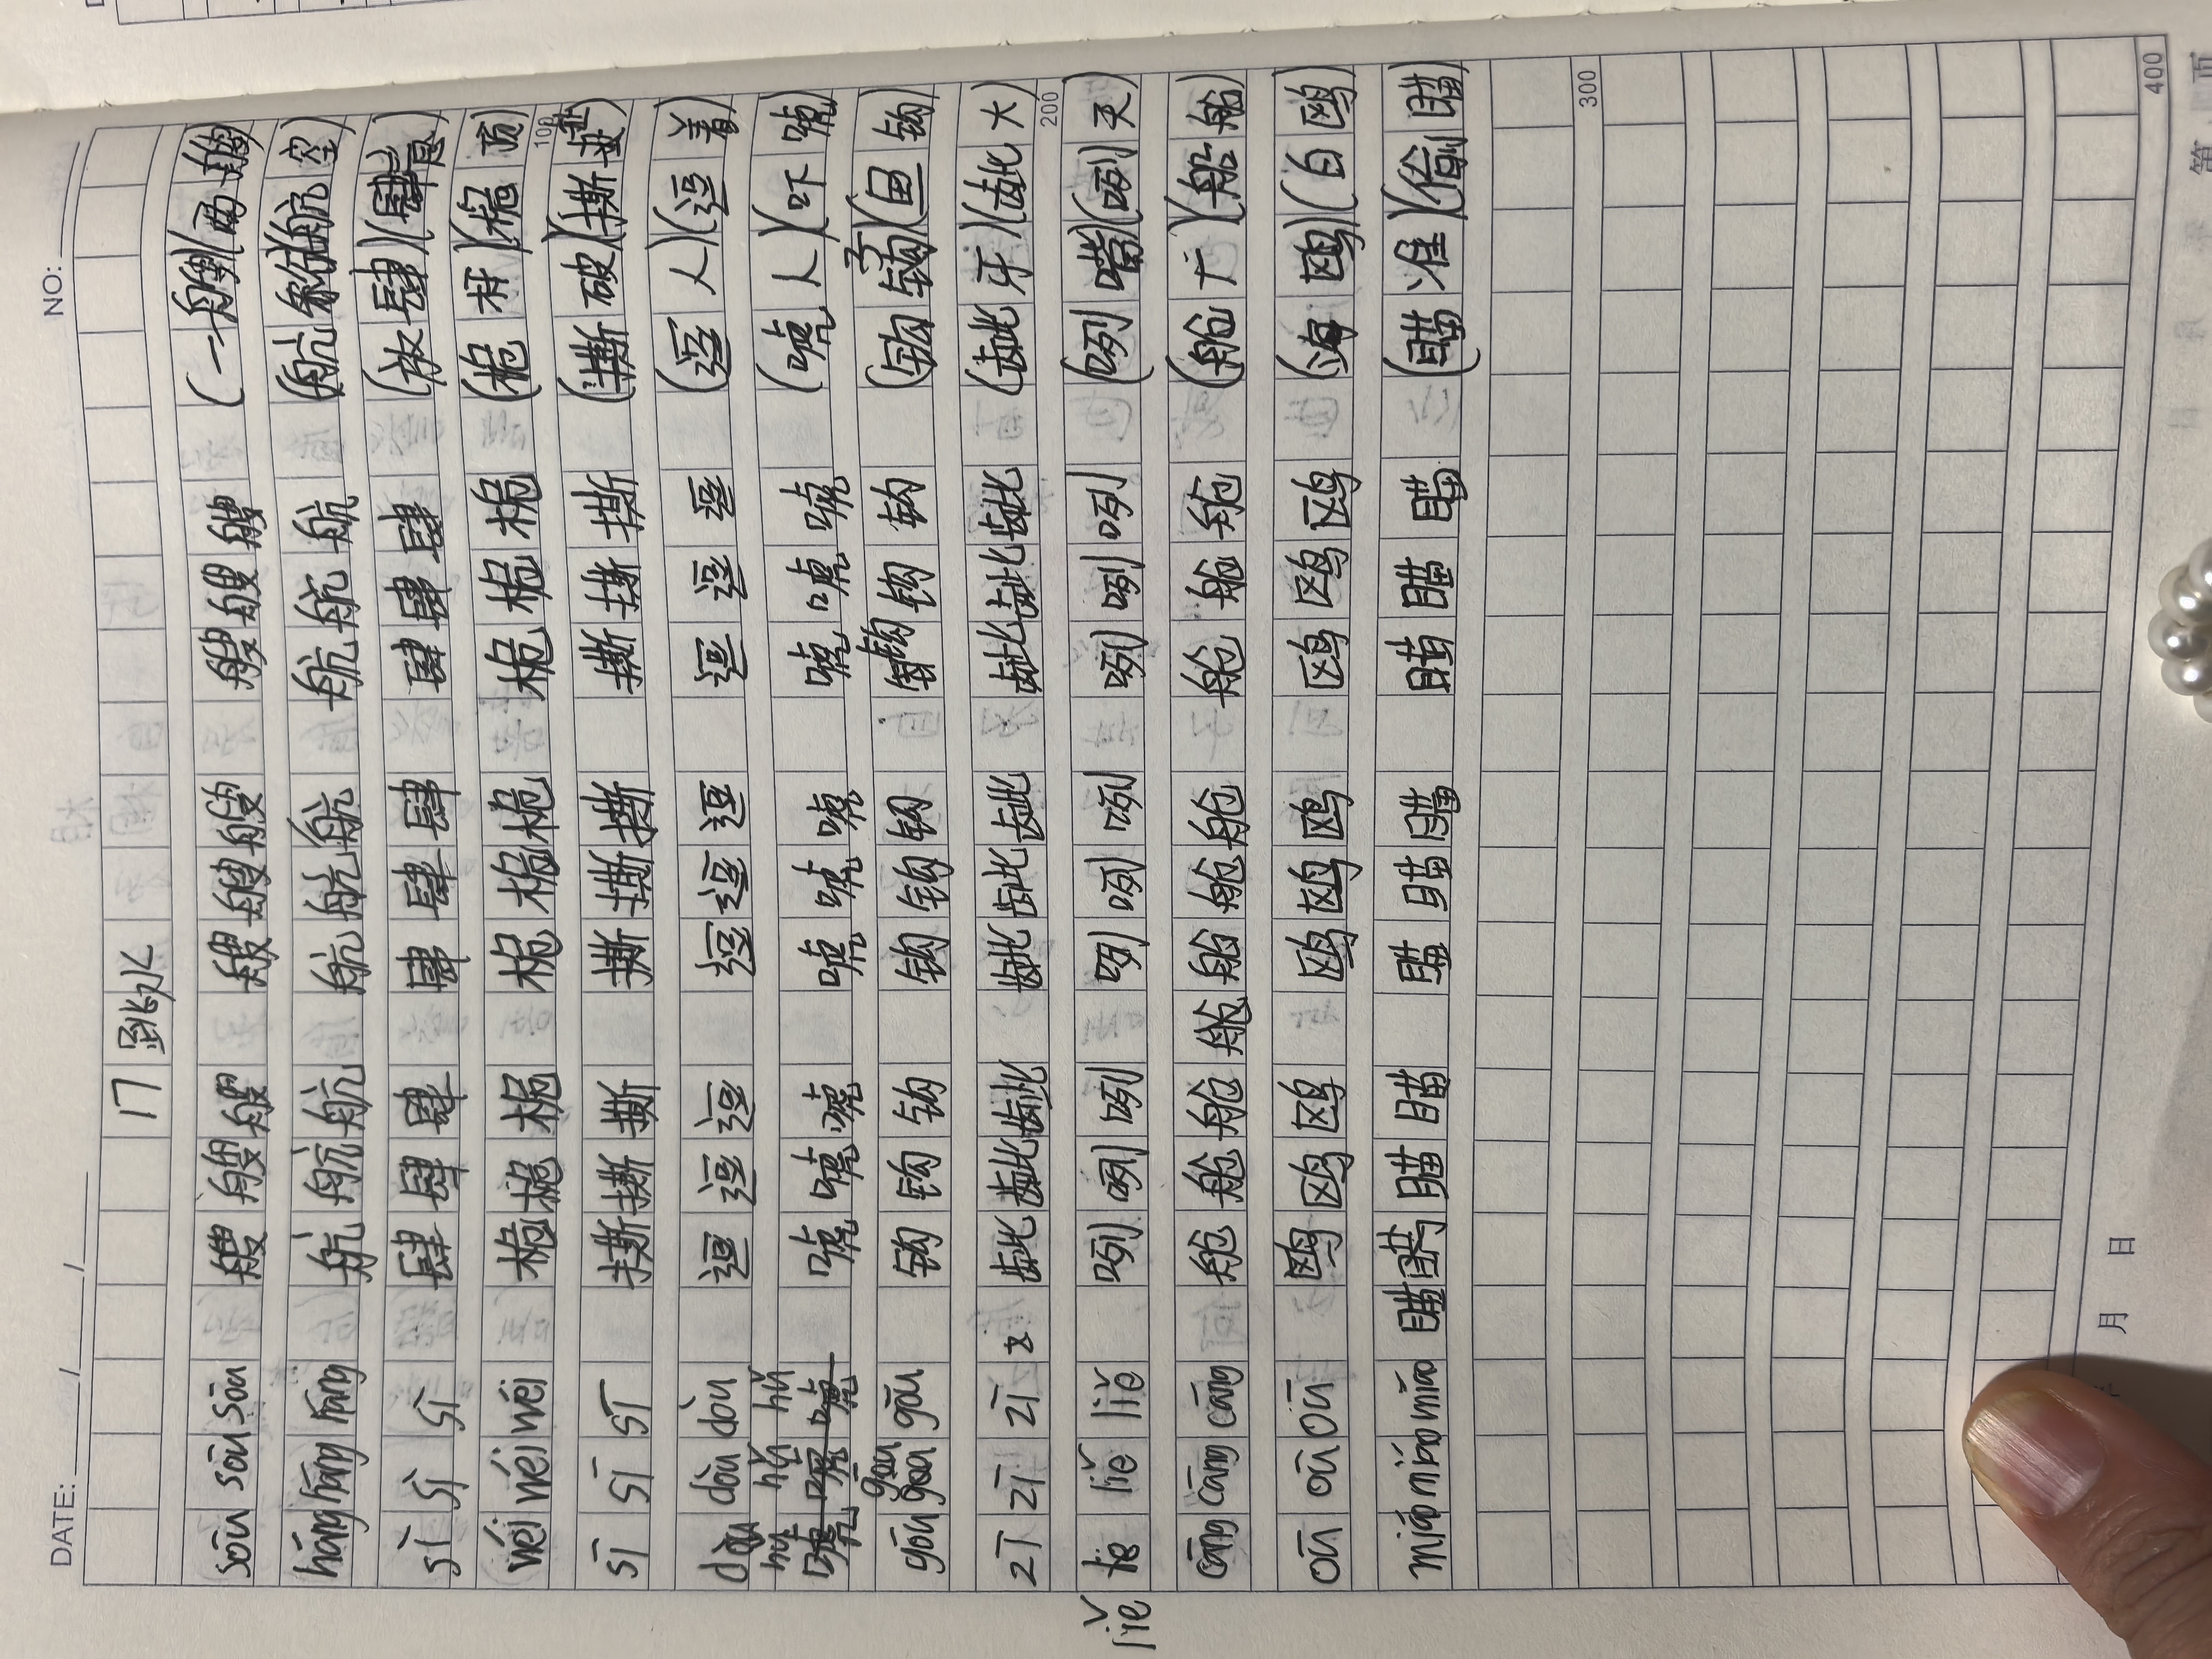 DATE: / / NO:
17 跳水
sōu sōu sōu 艘 艘 艘 艘 艘 艘 艘 艘 艘 (一艘)(两艘)
háng háng háng 航 航 航 航 航 航 航 航 航 (航 空)
sì sì sì 肆 肆 肆 肆 肆 肆 肆 肆 肆 (放肆)(肆意)
wéi wéi wéi 桅 桅 桅 桅 桅 桅 桅 桅 桅 (桅杆)(桅顶)
100
sī sī sī 撕 撕 撕 撕 撕 撕 撕 撕 撕 (撕破)(撕
dòu dòu dòu 逗 逗 逗 逗 逗 逗 逗 逗 逗 (逗人)(逗着)
hǔ hǔ hǔ
唬 唬 唬 唬 唬 唬 唬 唬 唬 (唬人)(吓唬)
gōu gōu gōu 钩 钩 钩 钩 钩 钩 钩 钩 (钩子)(鱼钩)
zī zī zī 龇 龇 龇 龇 龇 龇 龇 龇 龇 (龇牙)(龇大)
200
liě liě liě 咧 咧 咧 咧 咧 咧 咧 咧 (咧嘴)(咧天)
cāng cāng cāng 舱 舱 舱 舱 舱 舱 舱 舱 舱 舱 (舱广)(船舱)
ōu ōu ōu 鸥 鸥 鸥 鸥 鸥 鸥 鸥 鸥 鸥 (海鸥)(白鸥)
miáo miáo miáo 瞄 瞄 瞄 瞄 瞄 瞄 瞄 瞄 瞄 (瞄准)(偷瞄)
300
400
月 日